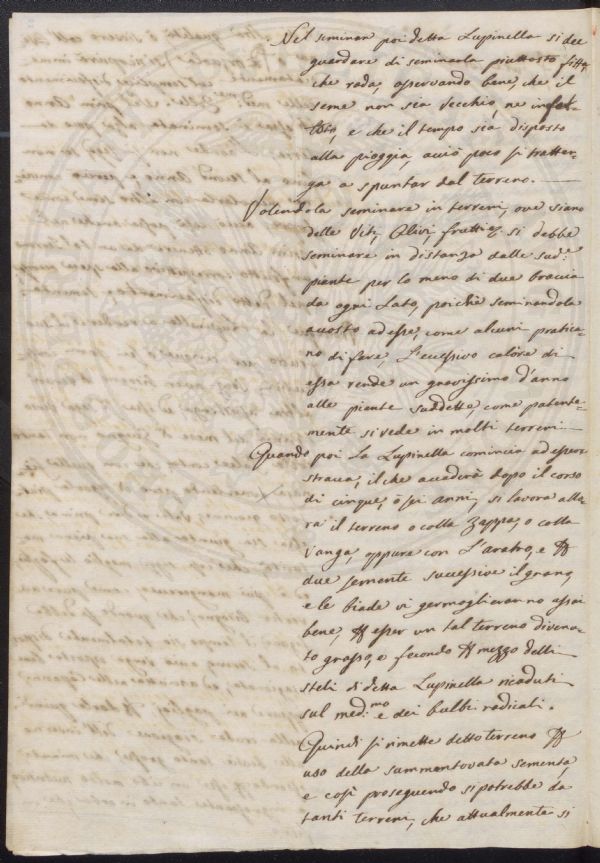 Nel seminar poi detta Lupinella si dee
guardare di seminarla piuttosto fitta,
che rada, osservando bene, che il
seme non sia vecchio, ne infet-
to, e che il tempo sia disposto
alla pioggia, acciò poco si tratten-
ga a spuntar dal terreno.
Volendola seminare in terreni, ove siano
delle Viti, Olivi, frutti si debbe
seminare in distanza dalle sud.e
piante per lo meno di due braccia
da ogni Lato, poichè seminandola
accosto ad esse, come alcuni pratica-
no di fare, L'eccessivo calore di
essa rende un gravissimo d'anno
alle piante suddette, come patente-
mente si vede in molti terreni.
Quando poi La Lupinella comincia ad esser
stracca, il che accaderà dopo il corso
di cinque, ò sei anni, si lavora allo-
ra il terreno o colla Zappa, o colla
Vanga, oppure con L'aratro, e
due semente successive il grano,
e le biade vi germoglieranno assai
bene, esser un tal terreno divenu-
to grasso, e fecondo mezzo delli
steli di detta Lupinella ricaduti
sul med.mo e dei bulbi radicali.
Quindi si rimette detto terreno
uso della summentovata sementa,
e così proseguendo si potrebbe da
tanti terreni, che attualmente si